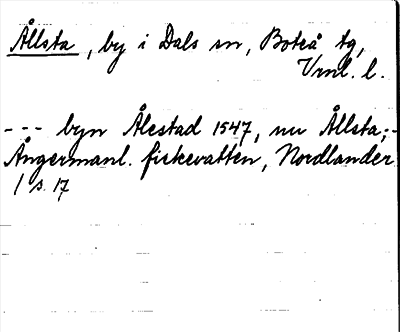 Ållsta, by i Dals sn, Boteå tg,
Vrnl. l.
--- byn Ålestad 1547, nu Ållsta; -
Ångermanl. fiskevatten, Nordlander
/ s. 17